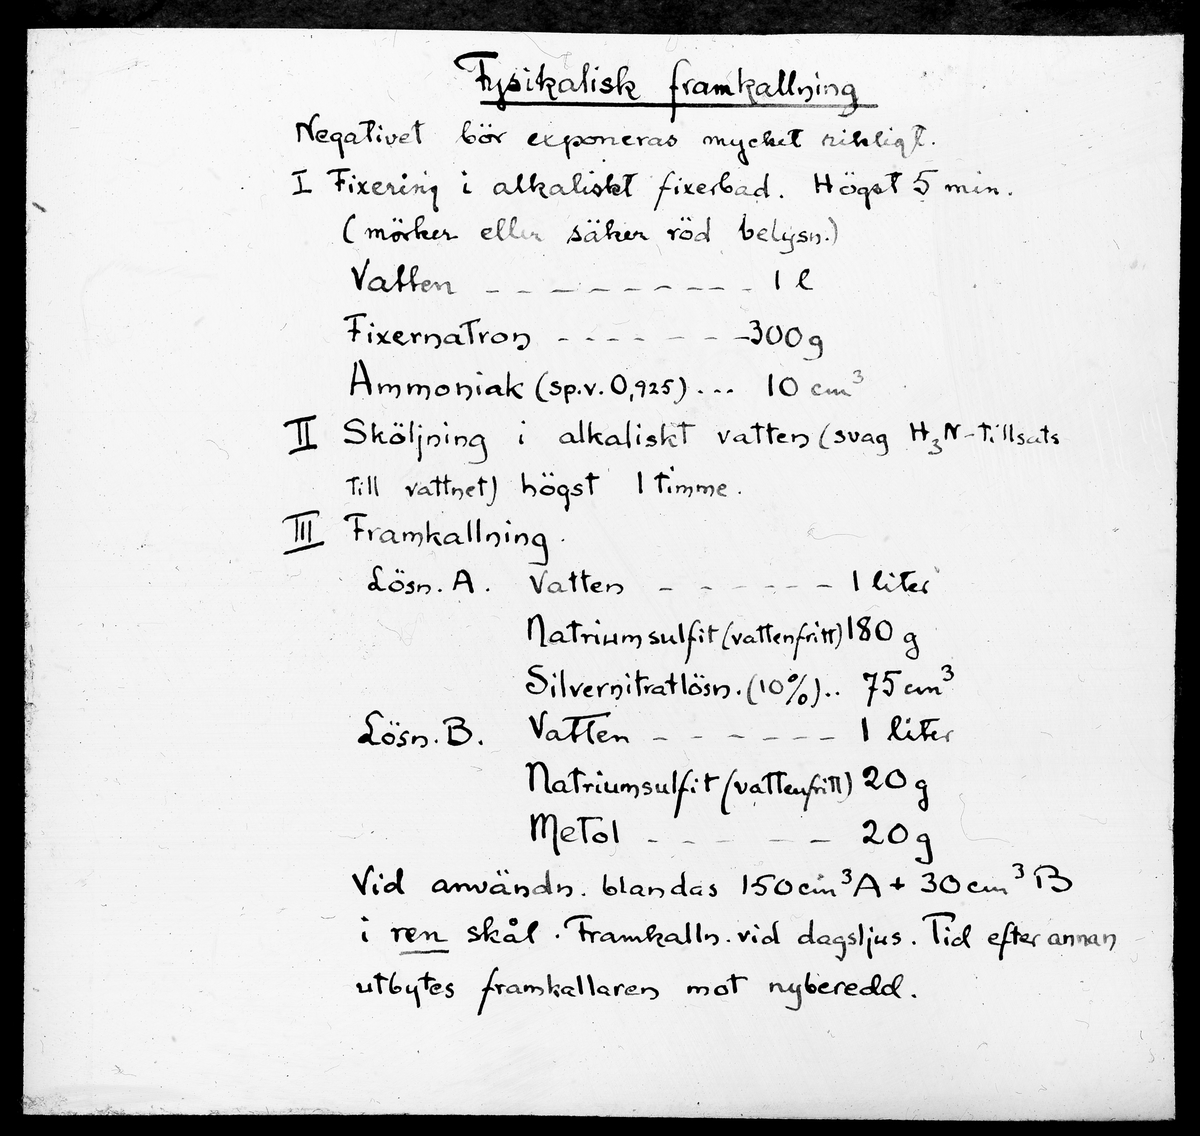 Fysikalisk framkallning
Negativet bör exponeras mycket rikligt.
I Fixering i alkaliskt fixerbad. Högst 5 min.
(mörker eller säker röd belysn.)
Vatten - - - - - - - - - 1 l
Fixernatron - - - - - - - 300 g
Ammoniak (sp.v. 0,925) ... 10 cm³
II Sköljning i alkaliskt vatten (svag H₃N-tillsats
till vattnet) högst 1 timme.
III Framkallning.
Lösn. A. Vatten - - - - - - 1 liter
Natriumsulfit (vattenfritt) 180 g
Silvernitratlösn. (10%).. 75 cm³
Lösn. B. Vatten - - - - - - 1 liter
Natriumsulfit (vattenfritt) 20 g
Metol - - - - - 20 g
Vid användn. blandas 150 cm³ A + 30 cm³ B
i ren skål. Framkalln. vid dagsljus. Tid efter annan
utbytes framkallaren mot nyberedd.